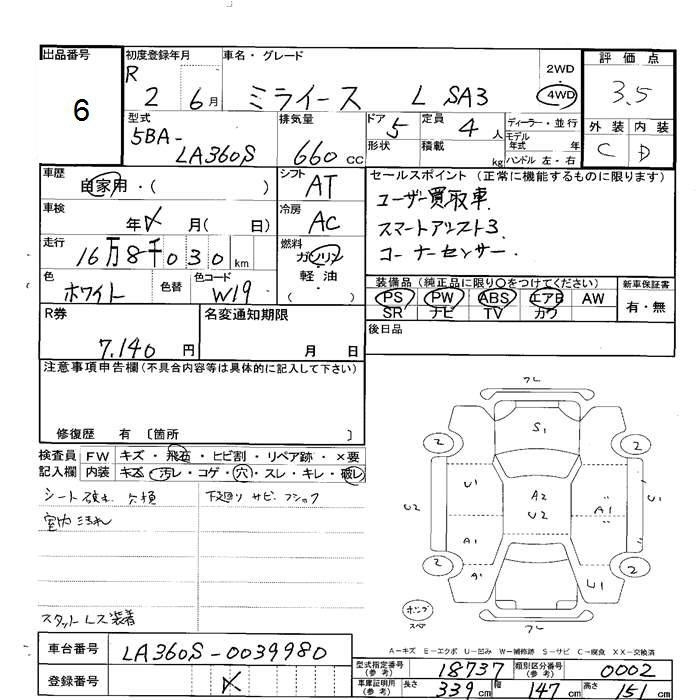 出品番号 初度登録年月 車名・グレード 評価点
6
R 2 6月 ミライース L SA3 2WD 4WD 3.5
外装 内装
C D
型式 排気量 ドア 定員 ディーラー・並行
5BA-LA360S 660cc 5 4人 モデル年式 年
形状 積載 kg ハンドル 左・右
車歴 自家用・( ) シフト AT
セールスポイント(正常に機能するものに限ります)
ユーザー買取車.
スマートアシスト3
コーナーセンサー.
車検 年 月( 日) 冷房 AC
走行 16万8千030km 燃料 ガソリン 軽油 ( )
色 ホワイト 色替 色コード W19
装備品(純正品に限り○をつけてください) 新車保証書
PS PW ABS エアB AW 有・無
SR ナビ TV カワ
R券 7.140円 名変通知期限 月 日 後日品
注意事項申告欄(不具合内容等は具体的に記入して下さい)
修復歴 有 〔箇所 〕
検査員 FW キズ・飛石・ヒビ割・リペア跡・×要
記入欄 内装 キズ・汚レ・コゲ・穴・スレ・キレ・破レ
シート破れ 下廻り サビ
スタットレス装着
フレ
2 S1 2
U1 A2 U2 A1 U1
U2
A1
2 A1 U1 2
フレ
スペア
A-キズ E-エクボ U-凹み W-補修跡 S-サビ C-腐食 XX-交換済
車台番号 LA360S-0039980
登録番号
型式指定番号(参考) 18737 類別区分番号(参考) 0002
車庫証明用(参考) 長さ 339cm 幅 147cm 高さ 151cm